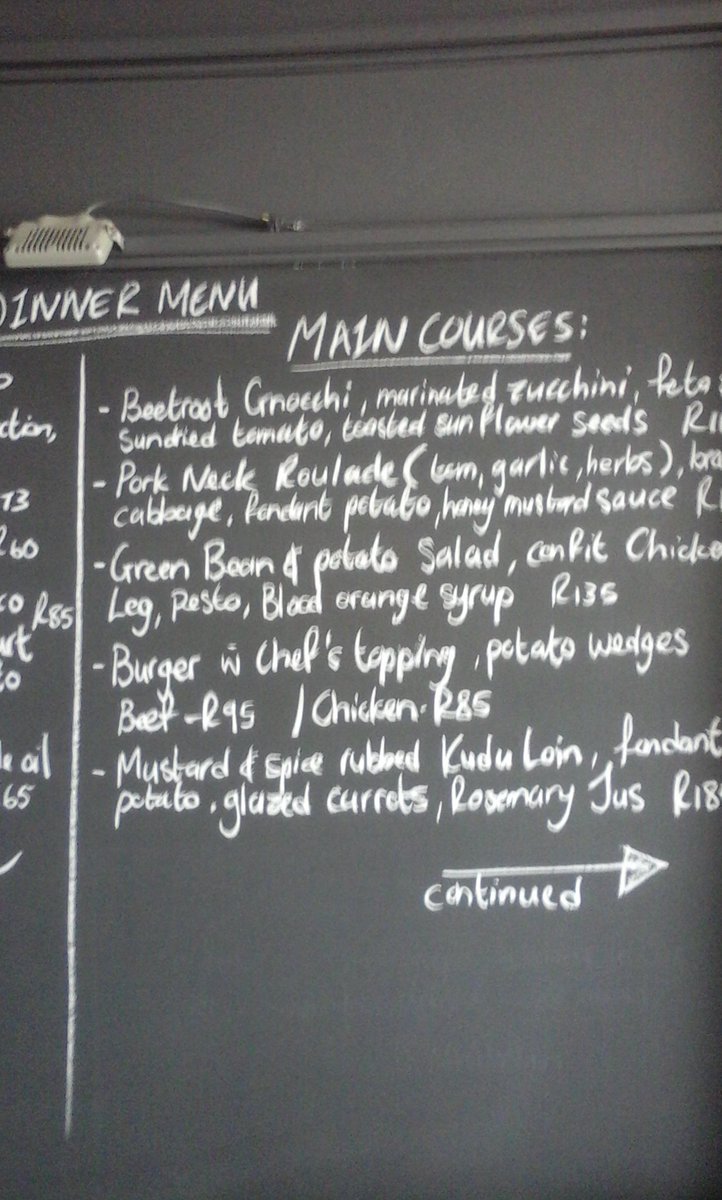 DINNER MENU
MAIN COURSES:
- Beetroot Gnocchi, marinated zucchini, feta
sundried tomato, toasted sunflower seeds
- Pork Neck Roulade (bom, garlic, herbs),
cabbage, fondant potato, honey mustard sauce
- Green Bean & potato Salad, confit Chicke
Leg, Pesto, Blood orange syrup R135
- Burger w Chef's topping, potato wedges
Beef - R95 / Chicken - R85
- Mustard & spice rubbed Kudu Loin, fondant
potato, glazed carrots, Rosemary Jus R18
continued
ction,
73
R60
co R85
art
to
le oil
65